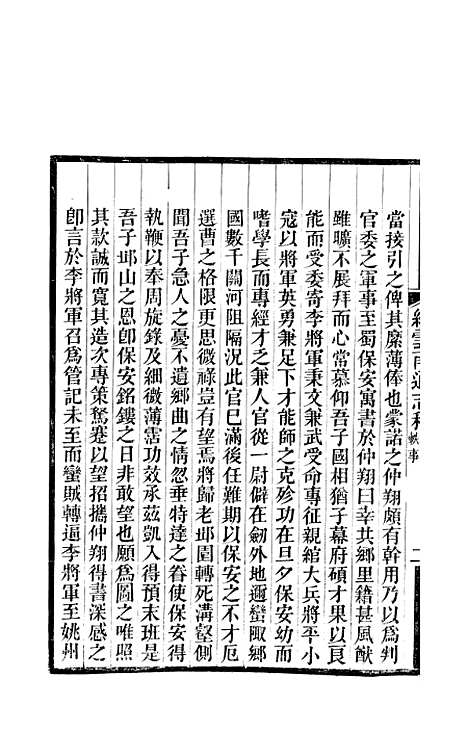 續雲南通志稿 軼事 二
當接引之俾其縻薄俸也蒙諾之仲翔頗有幹用乃以爲判
官委之軍事至蜀保安寓書於仲翔曰幸共鄉里籍甚風猷
雖曠不展拜而心常慕仰吾子國相猶子幕府碩才果以良
能而受委寄李將軍秉文兼武受命專征親綰大兵將平小
寇以將軍英勇兼足下才能師之克殄功在旦夕保安幼而
嗜學長而專經才乏兼人官從一尉僻在劒外地邇蠻陬鄉
國數千關河阻隔況此官巳滿後任難期以保安之不才厄
選曹之格限更思微祿豈有望焉將歸老邱園轉死溝壑側
聞吾子急人之憂不遺鄉曲之情忽垂特達之眷使保安得
執鞭以奉周旋錄及細微薄霑功效承茲凱入得預末班是
吾子邱山之恩卽保安銘鏤之日非敢望也願爲圖之唯照
其款誠而寬其造次專策駑蹇以望招攜仲翔得書深感之
卽言於李將軍召爲管記未至而蠻賊轉逼李將軍至姚州